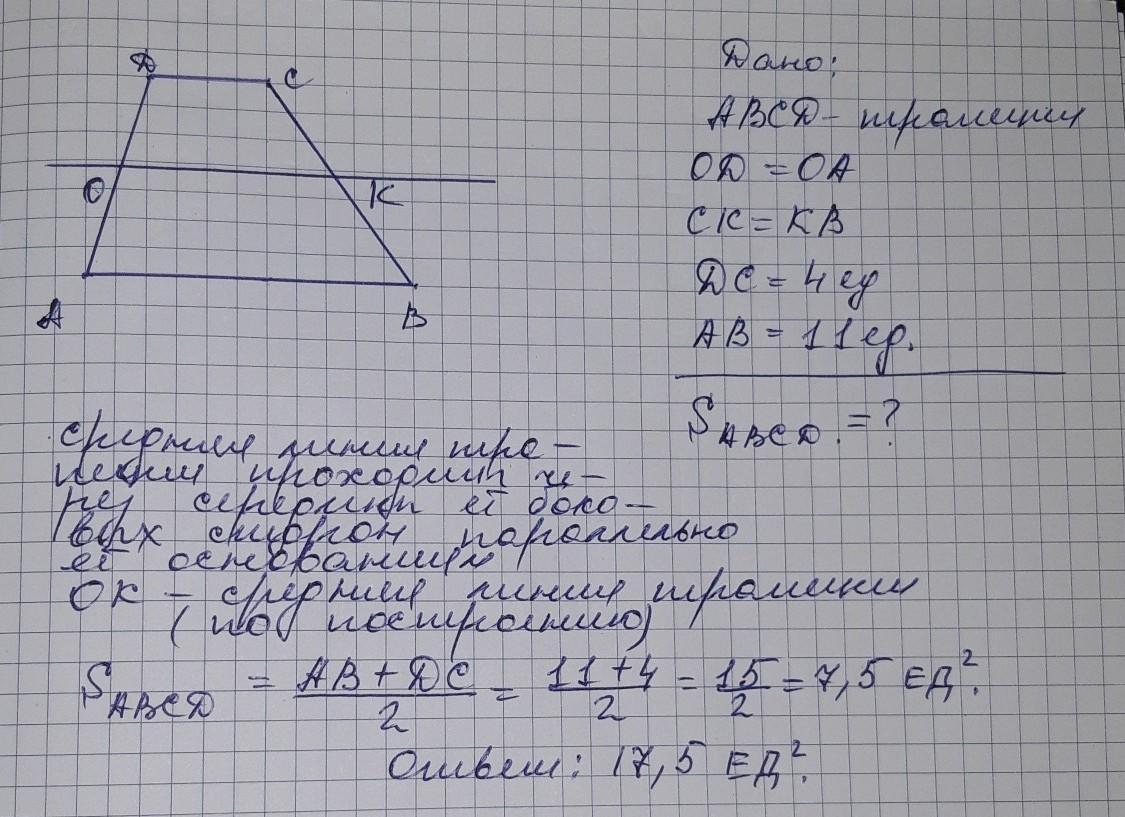 D
C
O
K
A
B
Дано:
ABCD - трапеция
OD = OA
CK = KB
DC = 4 ед
AB = 11 ед.
S ABCD. = ?
средняя линия тра-
пеции проходит че-
рез середины её боко-
вых сторон параллельно
её основаниям
OK - средняя линия трапеции
(по построению)
S ABCD = AB + DC / 2 = 11 + 4 / 2 = 15 / 2 = 7,5 ЕД².
Ответ: 17,5 ЕД².